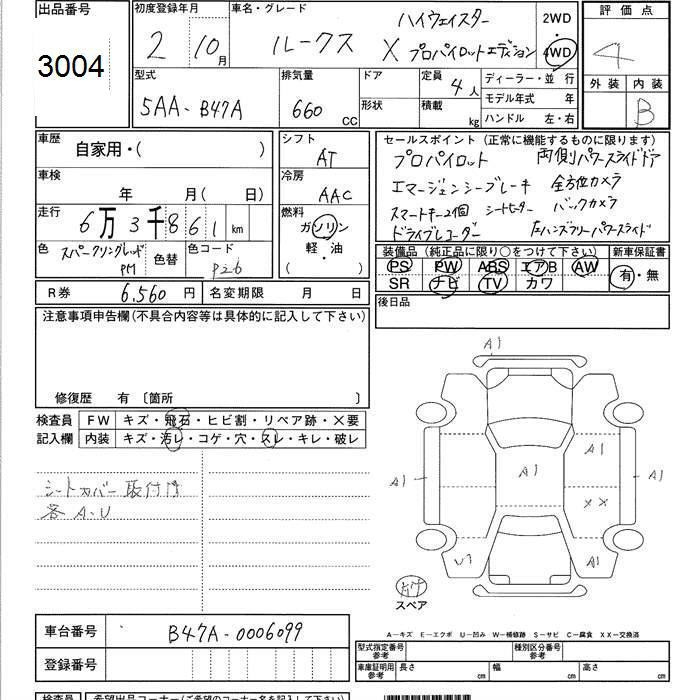 出品番号 3004
初度登録年月 2 10月
車名・グレード ルークス ハイウェイスター X プロパイロットエディション
2WD・4WD
評価点 4
外装 内装 B
型式 5AA-B47A
排気量 660 cc
ドア 形状
定員 4人
積載 kg
ディーラー・並行
モデル年式 年
ハンドル 左・右
車歴 自家用・( )
シフト AT
車検 年 月( 日)
冷房 AAC
走行 6万3千861km
燃料 ガソリン 軽・油 ( )
色 スパークリングレッドPM 色替
色コード
R券 6.560円 名変期限 月 日
セールスポイント (正常に機能するものに限ります)
プロパイロット 両側パワースライドドア
エマージェンシーブレーキ 全方位カメラ
スマートキー2個 シートヒーター バックカメラ
ドライブレコーダー 左ハンズフリーパワースライド
装備品 (純正品に限り○をつけて下さい) 新車保証書
PS PW ABS エアB AW 有・無
SR ナビ TV カワ
後日品
注意事項申告欄(不具合内容等は具体的に記入して下さい)
修復歴 有 〔箇所 〕
検査員記入欄 FW キズ・飛石・ヒビ割・リペア跡・×要
内装 キズ・汚レ・コゲ・穴・スレ・キレ・破レ
シートカバー取付け
各A.U
A1
A1
A1
A1
A1
XX
U1
A1
スペア
車台番号 B47A-0006099
登録番号
A−キズ E−エクボ U−凹み W−補修跡 S−サビ C−腐食 XX−交換済
型式指定番号 参考 種別区分番号 参考
車庫証明用 参考 長さ cm 幅 cm 高さ cm
検査員 希望出品コーナー(ご希望のコーナー名を記入下さい)